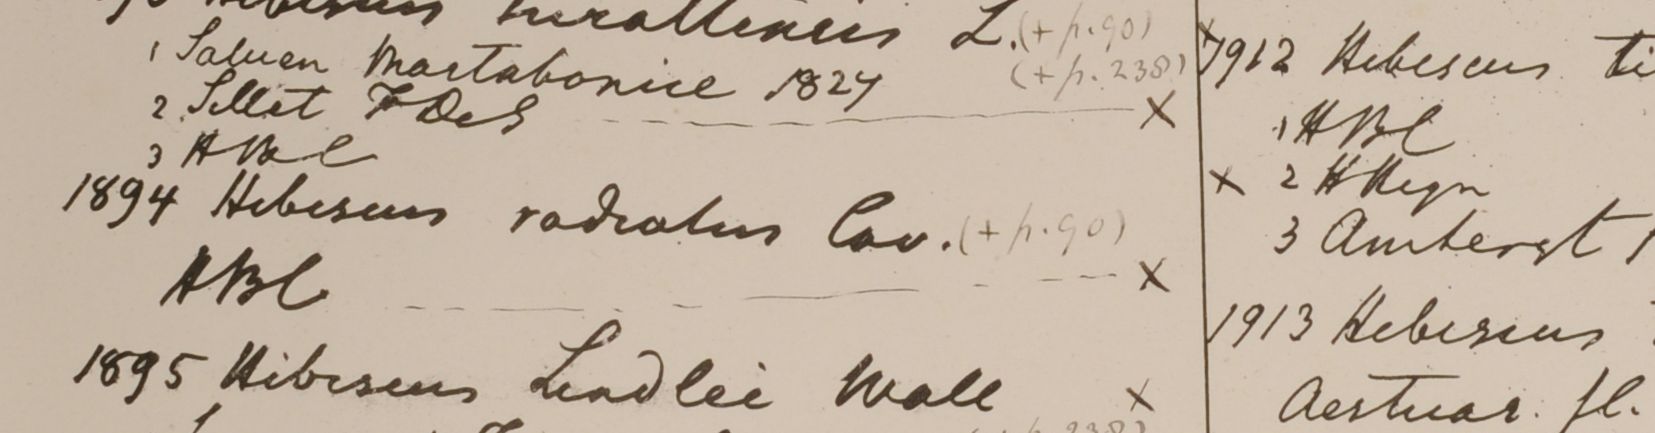 Hibiscus surattensis L. (+ p. 90)
1 Saluen Martabanice 1827 (+ p. 238)
2 Sillet FDeS X
3 HBC
1894 Hibiscus radiatus Cav. (+ p. 90)
HBC X
1895 Hibiscus Lindlei Wall X
X 1912 Hibiscus ti
1 HBC
X 2 HHeyn
3 Amherst
1913 Hibiscus
Aestuar. fl.